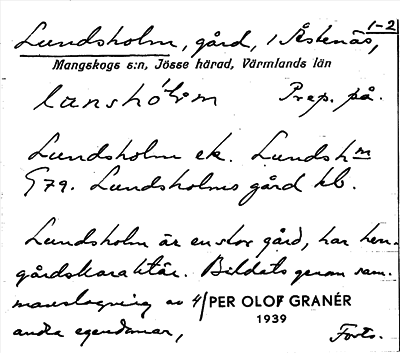 1-2
Lundsholm, gård, i Åstenäs,
Mangskogs s:n, Jösse härad, Värmlands län
lanshòl̀m Prep. på.
Lundsholm ek. Lundshm
G79. Lundsholms gård kb.
Lundsholm är en stor gård, har herr-
gårdskaraktär. Bildats genom sam-
manslagning av 4
PER OLOF GRANÉR
1939
andra egendomar, Forts.